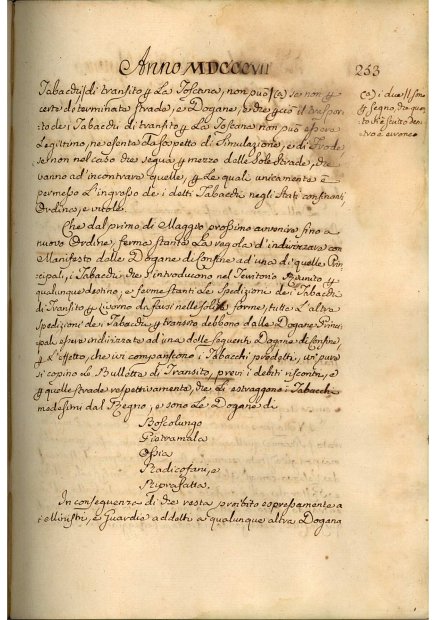 Anno MDCCCVII
253
Tabacchi di transito per La Toscana, non può (a) se non per
certe determinate strade, e Dogane, e che perciò il traspor¦
to de i Tabacchi di transito per La Toscana non può essere
Legittimo, ne esente da sospetto di Simulazione, e di Frode
se non nel caso che segua per mezzo delle sole strade, che
vanno ad incontrare quelle, per Le quali unicamente è
permesso L'ingresso de i detti Tabacchi negli Stati confinanti,
Ordina, e vuole.
Che dal primo di Maggio prossimo avvenire fino a
nuovo Ordine, ferma stante La regola d'indirizzare con
Manifesto dalle Dogane di Confine ad una di quelle Prin¦
cipali, i Tabacchi che s'introducono nel Territorio Riunito per
qualunque destino, e ferme stanti Le Spedizioni de i Tabacchi
di Transito per Livorno da farsi nelle solite forme, tutte L'altre
Spedizioni de i Tabacchi per transito debbono dalle Dogane Princi¦
pali essere indirizzate ad una delle seguenti Dogane di Confine,
per L'effetto, che ivi compariscono i Tabacchi predetti, vi
si copino Le Bullette di Transito, previ i debiti riscontri, e
per quelle strade respettivamente, che Li estraggono i Tabacchi
medesimi dal Regno, e sono Le Dogane di
Boscolungo
Pietramala
Ossaia
Radicofani, e
Riprafatta.
In conseguenza di che resta proibito espressamente a
i Ministri, e Guardie addetti a qualunque altra Dogana
(a) i due
segno, che que
to che è scritto den
tro è erroneo